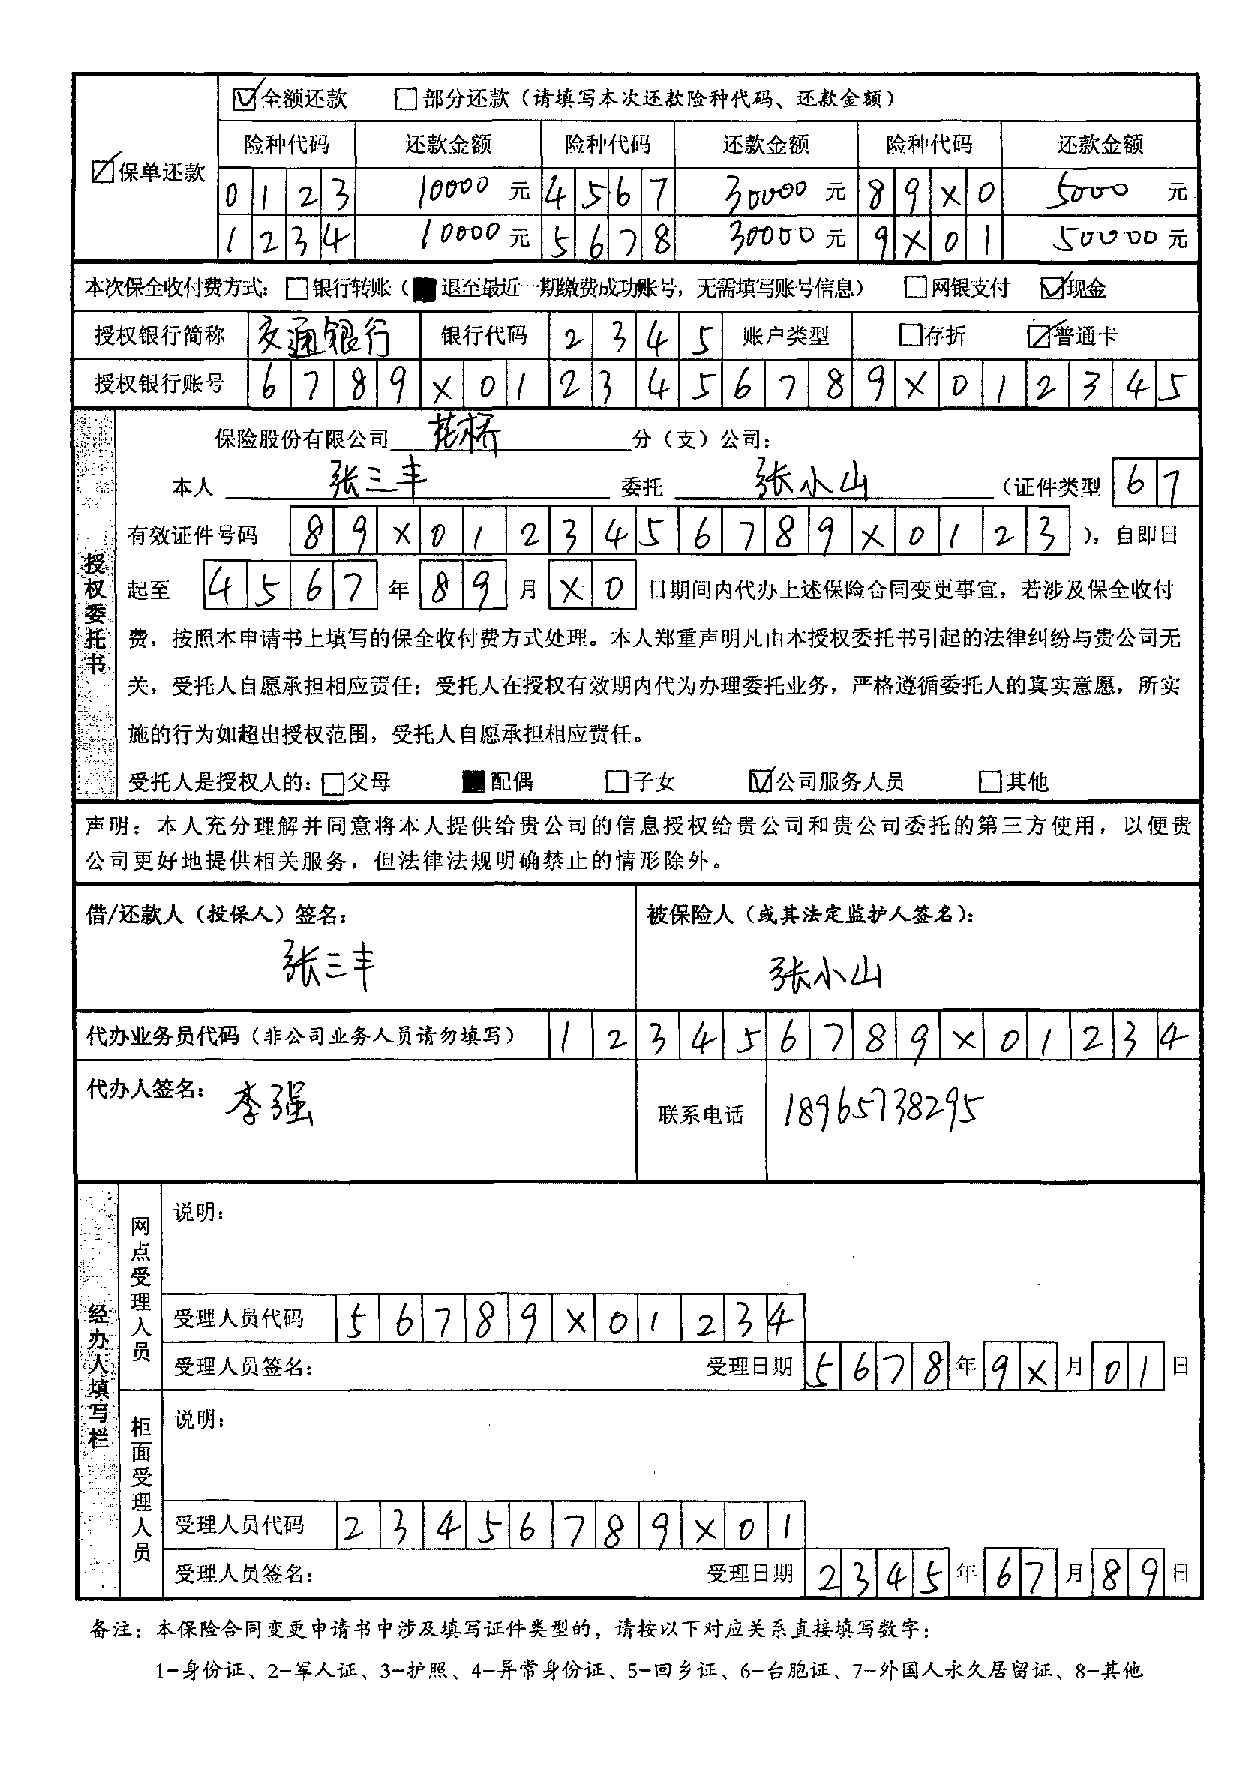 ☑全额还款 ☐部分还款（请填写本次还款险种代码、还款金额）
☑保单还款
险种代码 还款金额 险种代码 还款金额 险种代码 还款金额
0123 10000元 4567 30000元 89X0 5000 元
1234 10000元 5678 30000元 9X01 50000元
本次保全收付费方式：☐银行转账（■退至最近一期缴费成功账号，无需填写账号信息） ☐网银支付 ☑现金
授权银行简称 交通银行 银行代码 2345 账户类型 ☐存折 ☑普通卡
授权银行账号 6789X0123456789X012345
授权委托书
保险股份有限公司 花桥 分（支）公司：
本人 张三丰 委托 张小山 （证件类型 67
有效证件号码 89X0123456789X0123 ），自即日
起至 4567年89月X0日期间内代办上述保险合同变更事宜，若涉及保全收付
费，按照本申请书上填写的保全收付费方式处理。本人郑重声明凡由本授权委托书引起的法律纠纷与贵公司无
关，受托人自愿承担相应责任；受托人在授权有效期内代为办理委托业务，严格遵循委托人的真实意愿，所实
施的行为如超出授权范围，受托人自愿承担相应责任。
受托人是授权人的：☐父母 ■配偶 ☐子女 ☑公司服务人员 ☐其他
声明：本人充分理解并同意将本人提供给贵公司的信息授权给贵公司和贵公司委托的第三方使用，以便贵
公司更好地提供相关服务，但法律法规明确禁止的情形除外。
借/还款人（投保人）签名： 被保险人（或其法定监护人签名）：
张三丰 张小山
代办业务员代码（非公司业务人员请勿填写） 123456789X01234
代办人签名： 李强 联系电话 18965738295
经办人填写栏
网点受理人员
说明：
受理人员代码 56789X01234
受理人员签名： 受理日期 5678年9X月01日
柜面受理人员
说明：
受理人员代码 23456789X01
受理人员签名： 受理日期 2345年67月89日
备注：本保险合同变更申请书中涉及填写证件类型的，请按以下对应关系直接填写数字：
1-身份证、2-军人证、3-护照、4-异常身份证、5-回乡证、6-台胞证、7-外国人永久居留证、8-其他